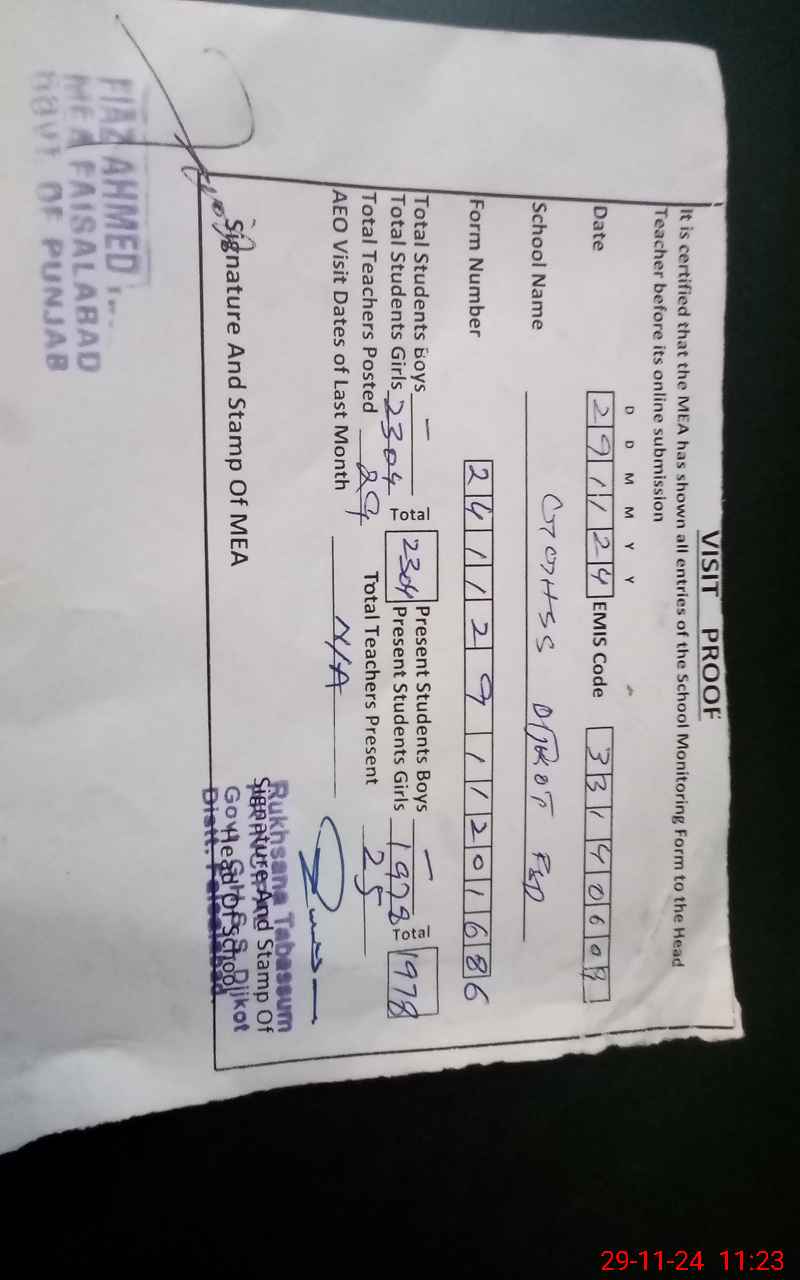 VISIT PROOF
It is certified that the MEA has shown all entries of the School Monitoring Form to the Head
Teacher before its online submission
D D M M Y Y
Date 291124 EMIS Code 33140609
School Name GGHSS DIJKOT FSD
Form Number 2411291120168 6
Total Students Boys — Total 2304 Present Students Boys — Total 1978
Total Students Girls 2304 Present Students Girls 1978
Total Teachers Posted Total Teachers Present 25
AEO Visit Dates of Last Month N/A
Signature And Stamp Of MEA
Signature And Stamp Of
Head Of School
Rukhsana Tabassum
Govt. G.H.S.S Dijkot
Distt. Faisalabad
FIAZ AHMED
MEA FAISALABAD
Govt. OF PUNJAB
29-11-24 11:23